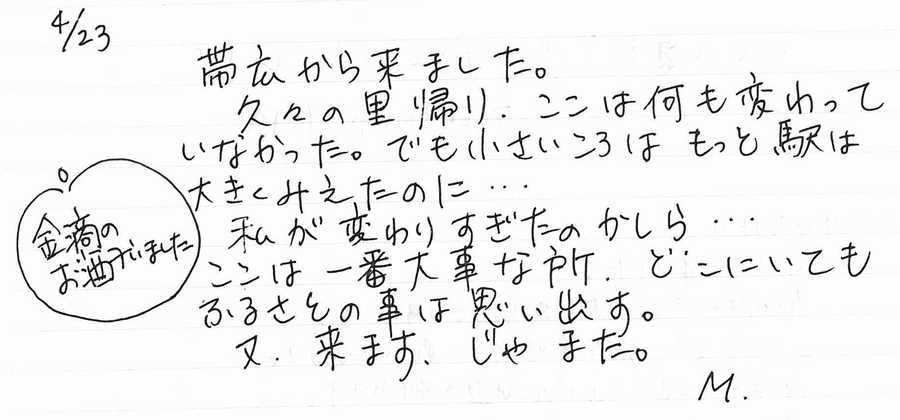 4/23
帯広から来ました。
久々の里帰り. ここは何も変わって
いなかった。でも小さいころは もっと駅は
大きくみえたのに…
私が変わりすぎたのかしら…
ここは一番大事な所. どこにいても
ふるさとの事は思い出す。
又. 来ます、じゃ また。
M.
金滴の
お酒
いました